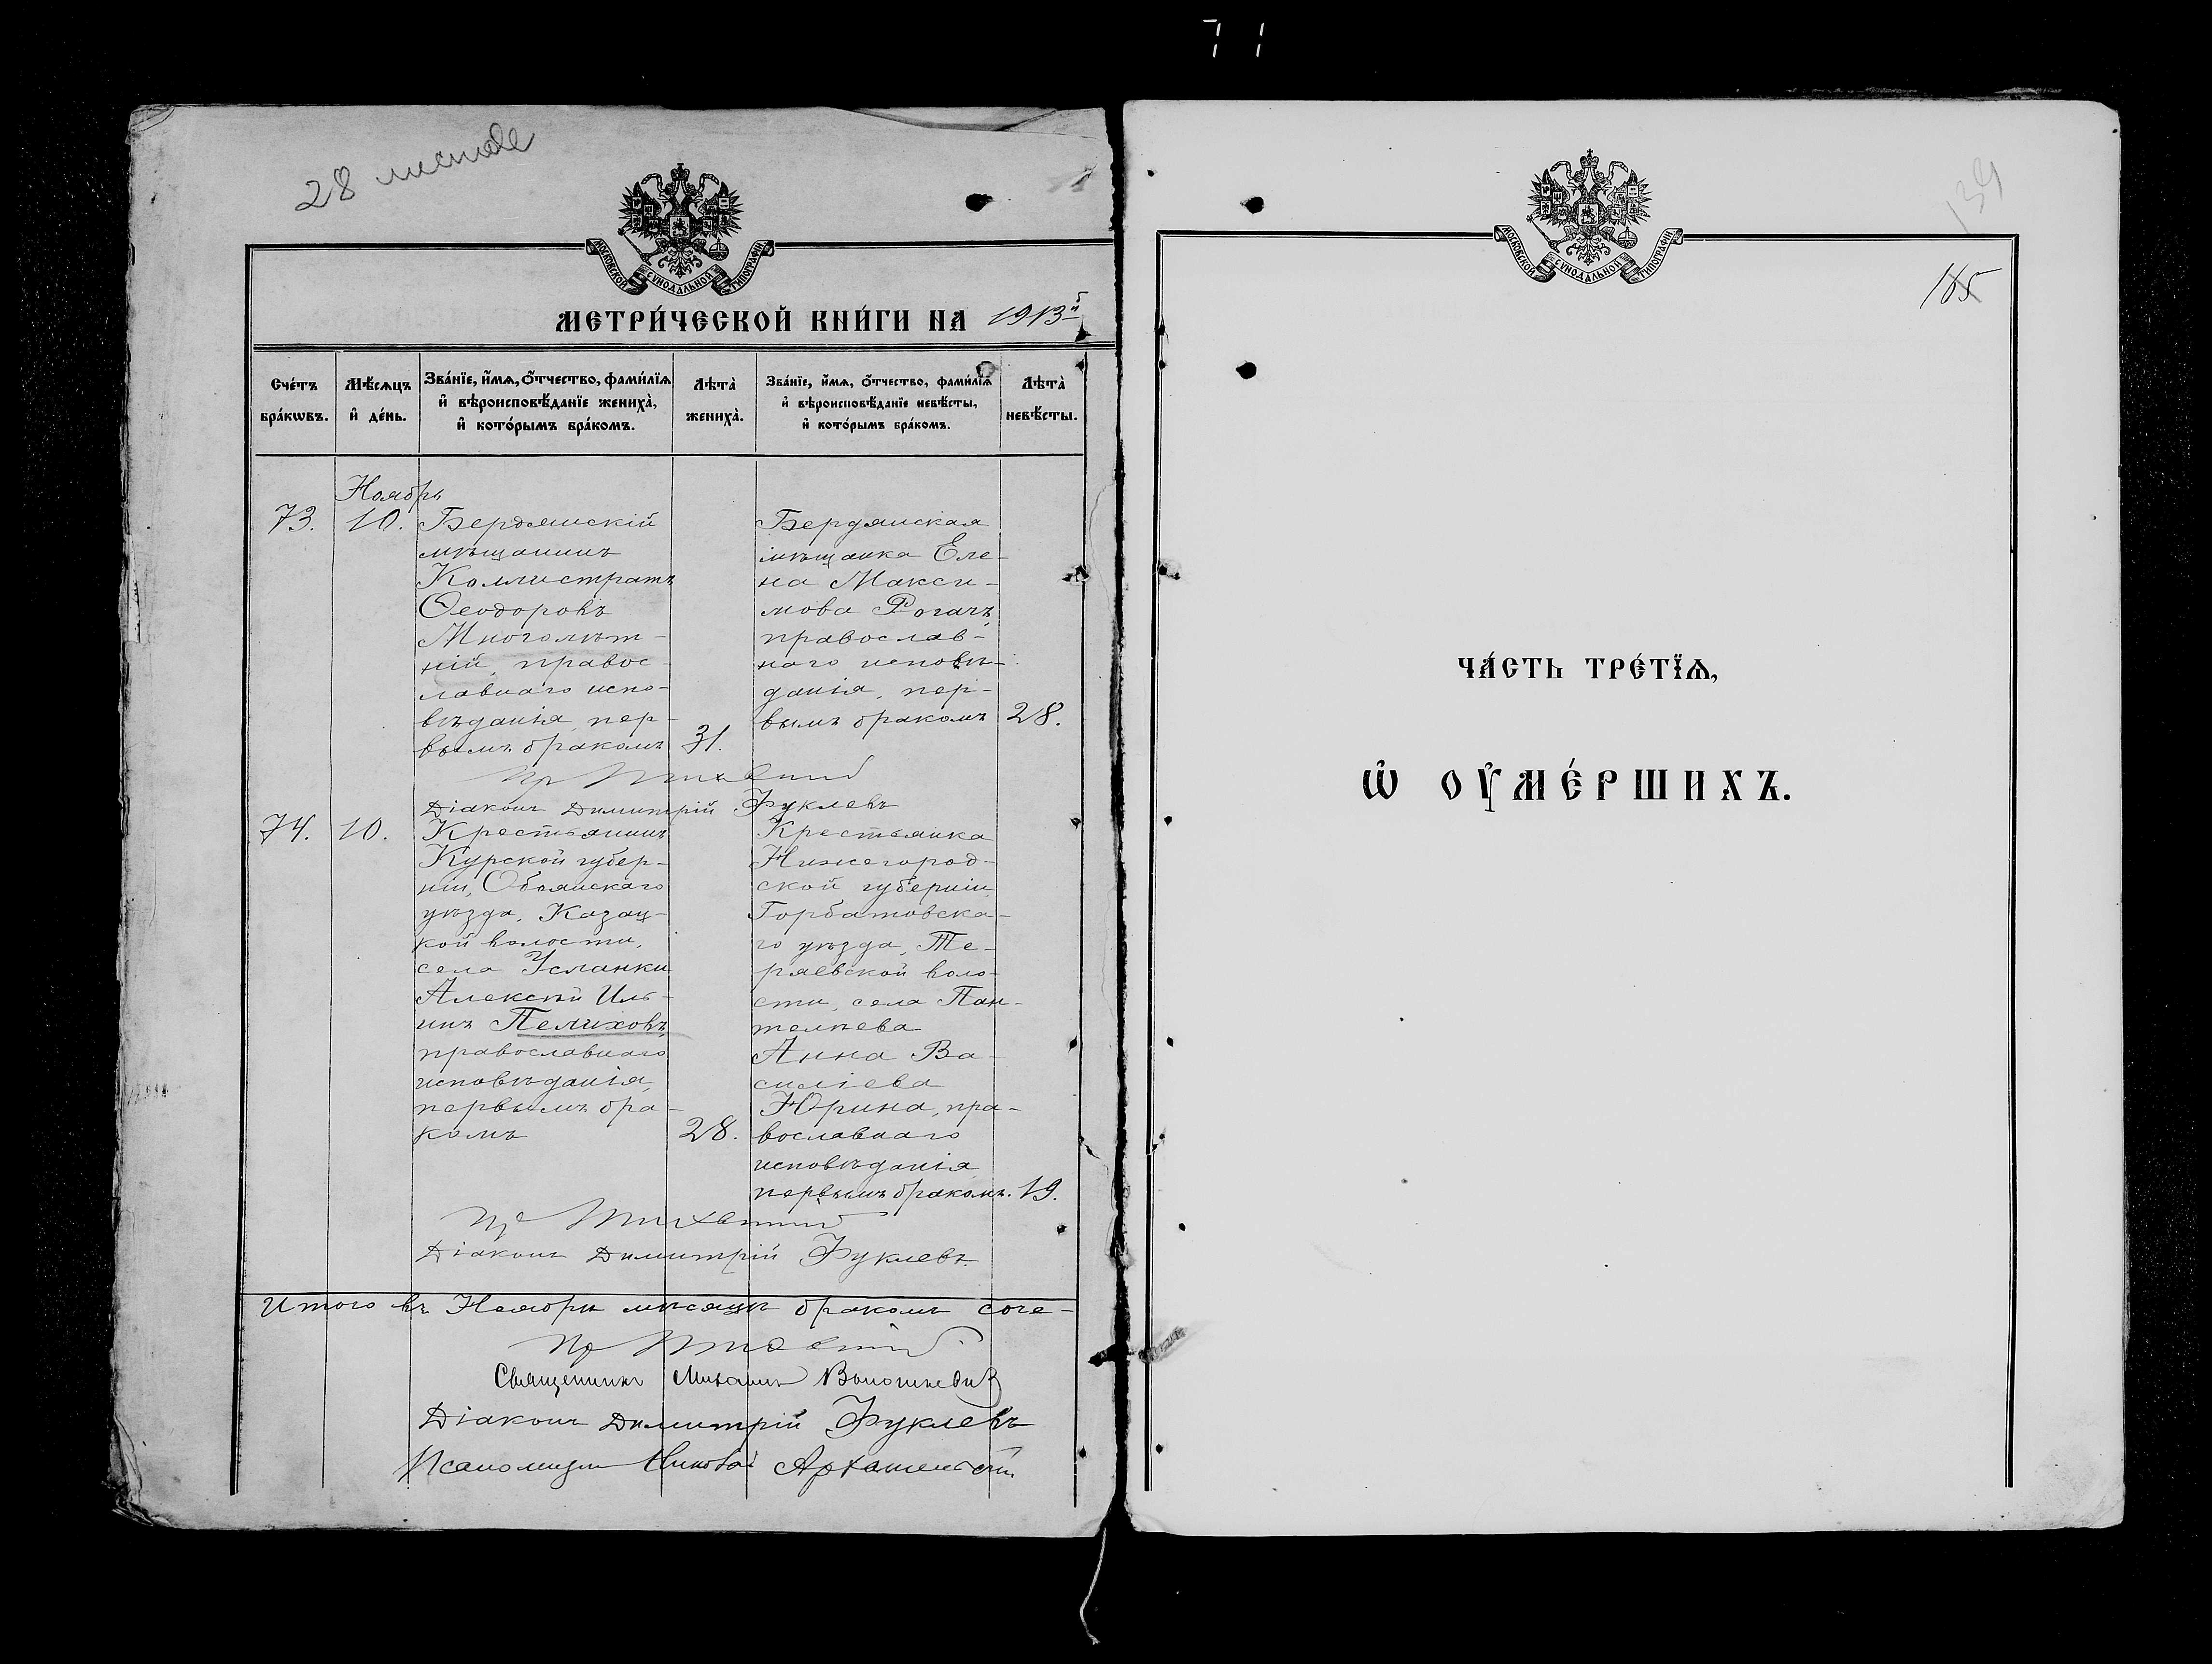 71
28 листовъ
МОСКОВСКОЙ СѴНОДАЛЬНОЙ ТИПОГРАФІИ
МЕТРИ́ЧЕСКОЙ КНИ́ГИ НА 1913й
Сче́тъ бра́кѡвъ.
Мѣ́сѧцъ и҆ де́нь.
Зва́нїе, и҆́мѧ, ѻ҆́тчество, фами́лїѧ и҆ вѣроисповѣ́данїе жениха̀, и҆ кото́рымъ бра́комъ.
Лѣта̀ жениха̀.
Зва́нїе, и҆́мѧ, ѻ҆́тчество, фами́лїѧ и҆ вѣроисповѣ́данїе невѣ́сты, и҆ кото́рымъ бра́комъ.
Лѣта̀ невѣ́сты.
Ноябрь
73.
10.
Бердянскій
мѣщанинъ
Каллистратъ
Ѳеодоровъ
Многолѣт-
ній, правос-
лавнаго испо-
вѣданія, пер-
вымъ бракомъ
31.
Бердянская
мѣщанка Еле-
на Макси-
мова Рогачъ,
православ-
наго исповѣ-
данія, пер-
вымъ бракомъ
28.
Діаконъ Димитрій Фуклевъ
74.
10.
Крестьянинъ
Курской губер-
ніи, Обоянскаго
уѣзда, Казац-
кой волости,
села Усланки
Алексѣй Иль-
инъ Пелиховъ,
православнаго
исповѣданія,
первымъ бра-
комъ
28.
Крестьянка
Нижегород-
ской губерніи
Горбатовска-
го уѣзда, Те-
ряевской воло-
сти, села Пан-
телѣева
Анна Ва-
силіева
Юрина, пра-
вославнаго
исповѣданія
первымъ бракомъ.
19.
Діаконъ Димитрій Фуклевъ
Итого въ Ноябрѣ мѣсяцѣ бракомъ соче-
Священникъ Михаилъ
Діаконъ Димитрій Фуклевъ
Псаломщикъ Николай Архангельскій
МОСКОВСКОЙ СѴНОДАЛЬНОЙ ТИПОГРАФІИ
139
ЧА́СТЬ ТРЕ́ТЇѦ,
Ѡ҆ ОУ҆МЕ́РШИХЪ.